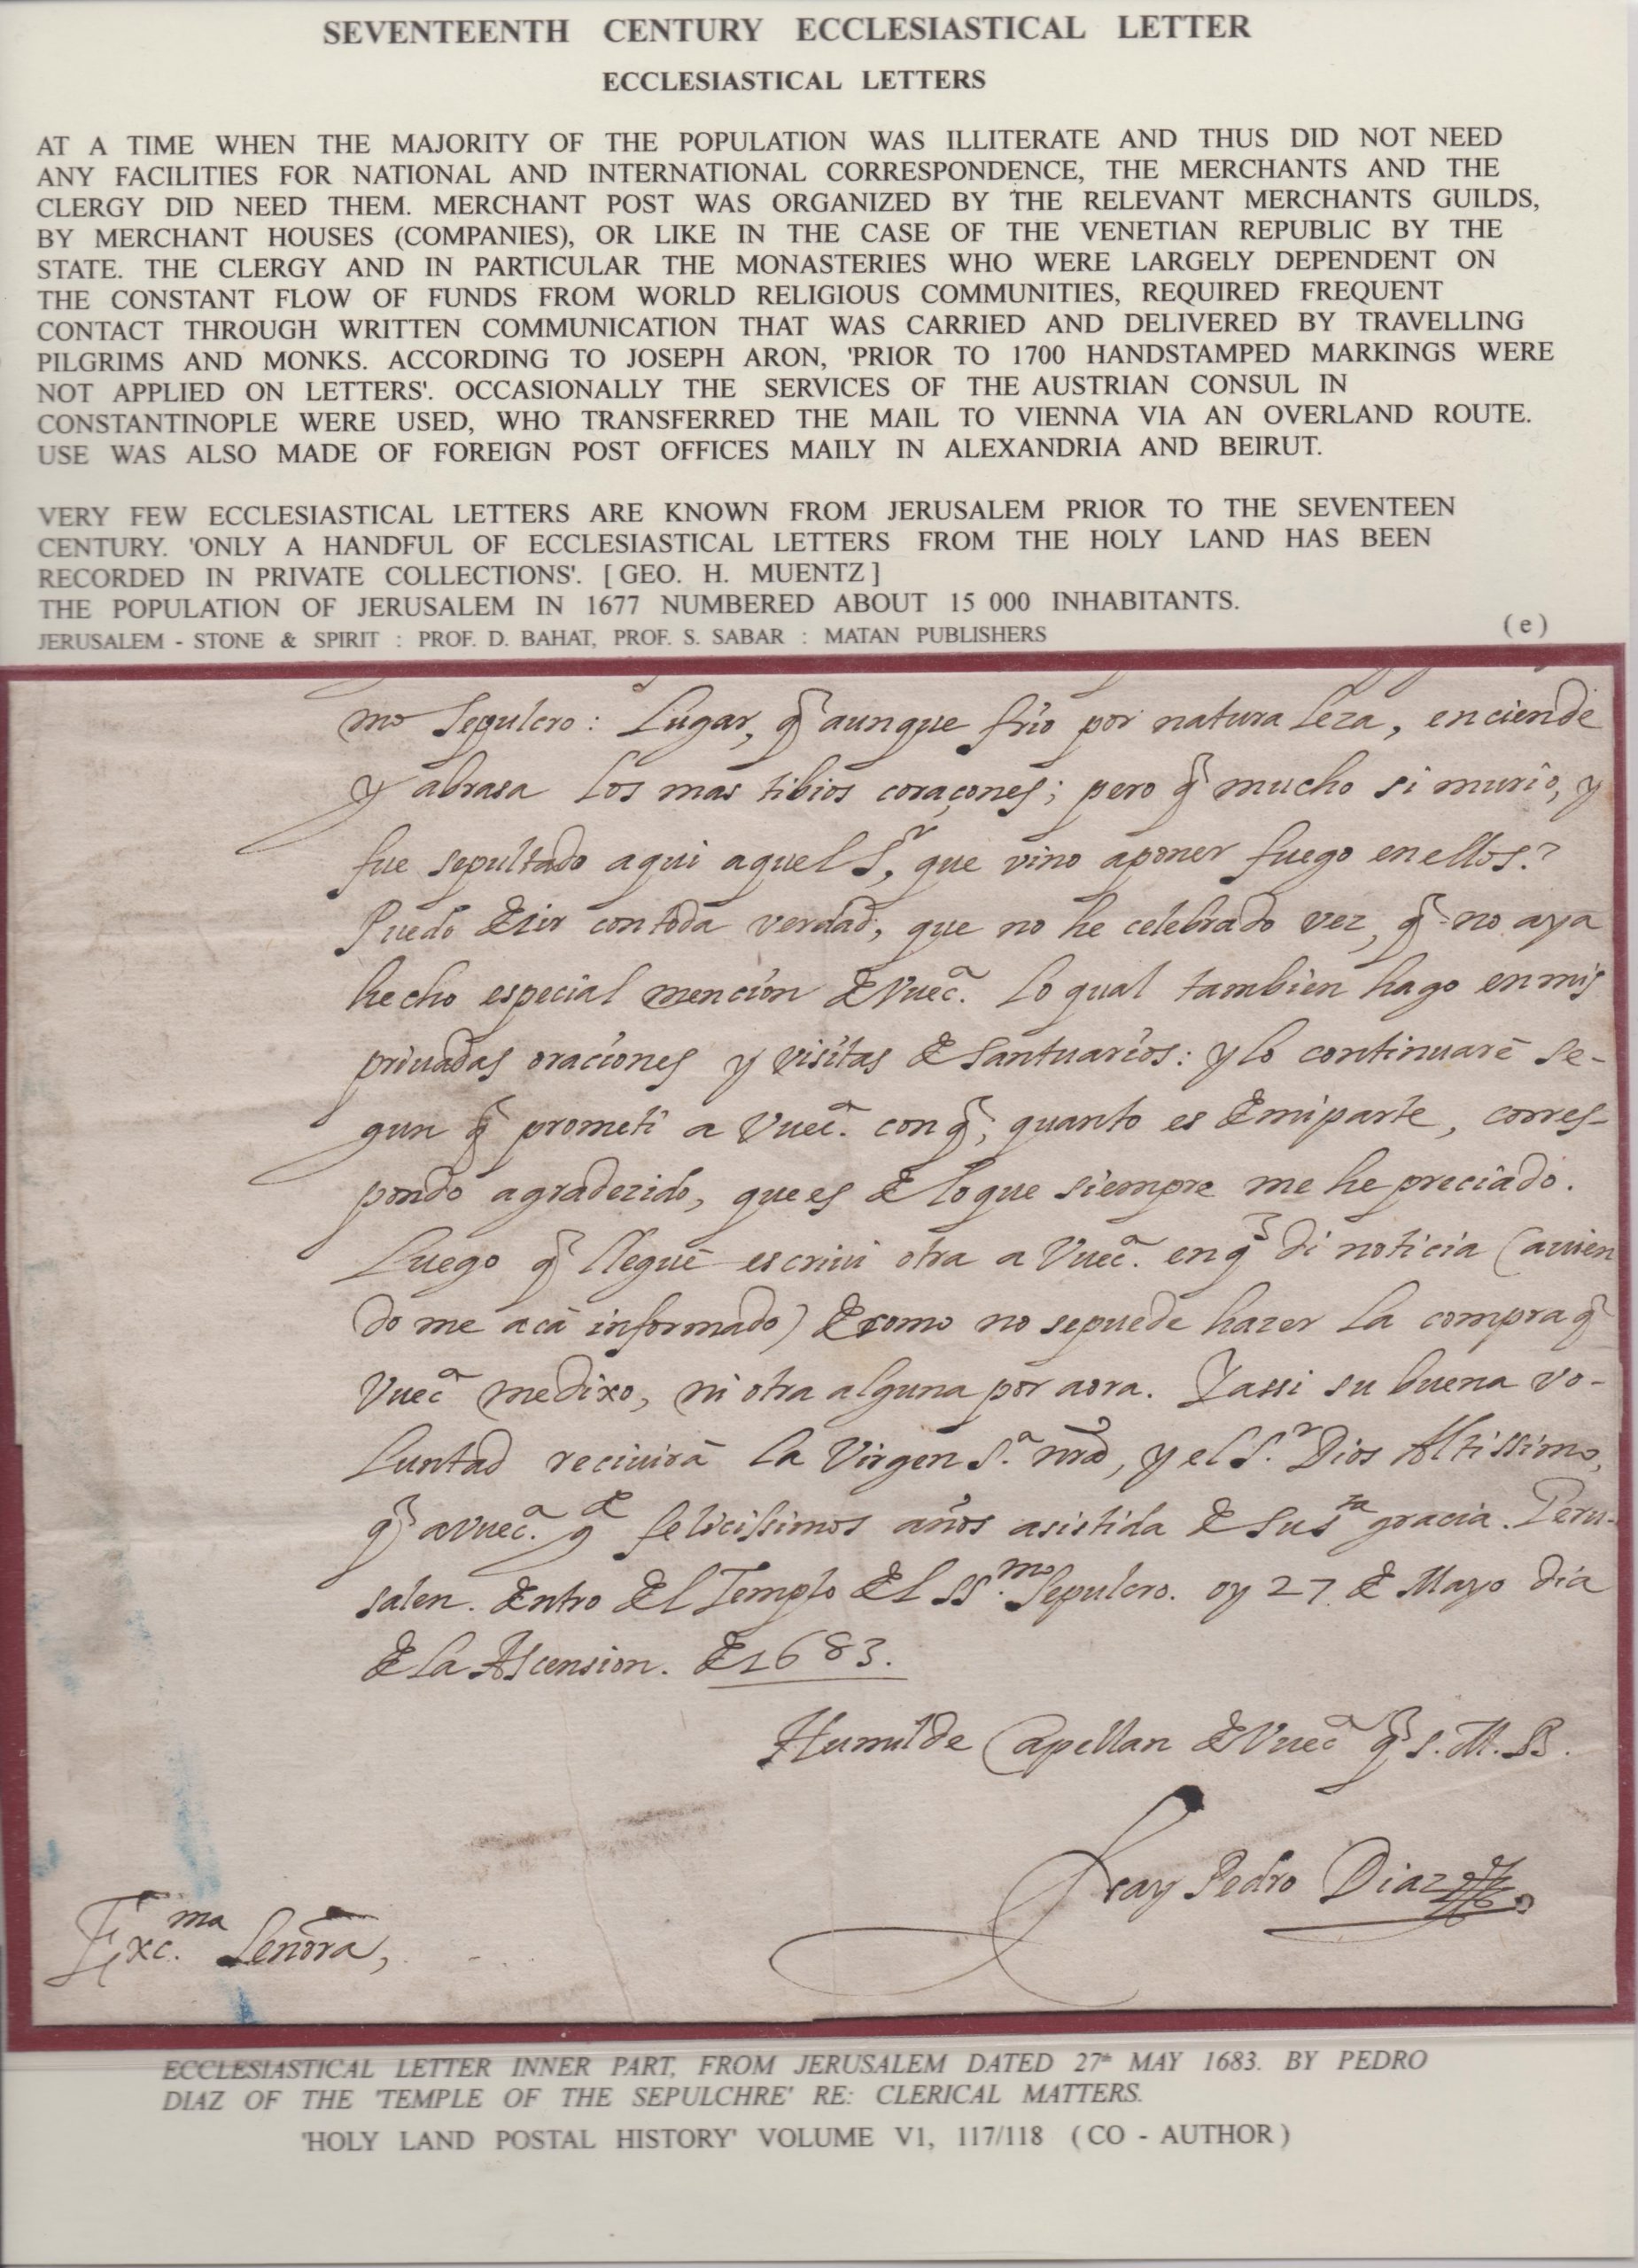 SEVENTEENTH CENTURY ECCLESIASTICAL LETTER
ECCLESIASTICAL LETTERS
AT A TIME WHEN THE MAJORITY OF THE POPULATION WAS ILLITERATE AND THUS DID NOT NEED
ANY FACILITIES FOR NATIONAL AND INTERNATIONAL CORRESPONDENCE, THE MERCHANTS AND THE
CLERGY DID NEED THEM. MERCHANT POST WAS ORGANIZED BY THE RELEVANT MERCHANTS GUILDS,
BY MERCHANT HOUSES (COMPANIES), OR LIKE IN THE CASE OF THE VENETIAN REPUBLIC BY THE
STATE. THE CLERGY AND IN PARTICULAR THE MONASTERIES WHO WERE LARGELY DEPENDENT ON
THE CONSTANT FLOW OF FUNDS FROM WORLD RELIGIOUS COMMUNITIES, REQUIRED FREQUENT
CONTACT THROUGH WRITTEN COMMUNICATION THAT WAS CARRIED AND DELIVERED BY TRAVELLING
PILGRIMS AND MONKS. ACCORDING TO JOSEPH ARON, 'PRIOR TO 1700 HANDSTAMPED MARKINGS WERE
NOT APPLIED ON LETTERS'. OCCASIONALLY THE SERVICES OF THE AUSTRIAN CONSUL IN
CONSTANTINOPLE WERE USED, WHO TRANSFERRED THE MAIL TO VIENNA VIA AN OVERLAND ROUTE.
USE WAS ALSO MADE OF FOREIGN POST OFFICES MAILY IN ALEXANDRIA AND BEIRUT.
VERY FEW ECCLESIASTICAL LETTERS ARE KNOWN FROM JERUSALEM PRIOR TO THE SEVENTEEN
CENTURY. 'ONLY A HANDFUL OF ECCLESIASTICAL LETTERS FROM THE HOLY LAND HAS BEEN
RECORDED IN PRIVATE COLLECTIONS'. [ GEO. H. MUENTZ ]
THE POPULATION OF JERUSALEM IN 1677 NUMBERED ABOUT 15 000 INHABITANTS.
JERUSALEM - STONE & SPIRIT : PROF. D. BAHAT, PROF. S. SABAR : MATAN PUBLISHERS
( e )
mo Sepulcro: Lugar, q̃ aunque frio por naturaleza, enciende
y abrasa los mas tibios coraçones; pero q̃ mucho si muriò, y
fue sepultado aqui aquel Sr, que vino aponer fuego en ellos?
Puedo dezir contoda verdad, que no he celebrado vez, q̃ no aya
hecho especial mencion de Vueca. Lo qual tambien hago en mis
priuadas oraciones y visitas de Santuarios: y lo continuarè se-
gun q̃ prometì a Vueca. con q̃, quanto es de mi parte, corres-
pondo agradezido, que es de lo que siempre me he preciado.
Luego q̃ lleguè escriui otra a Vueca. en q̃ di noticia (auien
do me acà informado) de como no sepuede hazer la compra q̃
Vueca me dixo, ni otra alguna por aora. Y assi su buena vo-
luntad reciuirà la Virgen Sa. nra, y el Sr. Dios Altissimo,
q̃ a Vueca. gde felicissimos años asistida de su sta gracia. Jeru-
salen. dentro del Templo del SSmo. Sepulcro. oy 27 de Mayo dia
de la Ascension. de 1683.
Humilde Capellan de Vueca q̃ S.M.B.
Fray Pedro Diaz
Excma. Señora,
ECCLESIASTICAL LETTER INNER PART, FROM JERUSALEM DATED 27th MAY 1683. BY PEDRO
DIAZ OF THE 'TEMPLE OF THE SEPULCHRE' RE: CLERICAL MATTERS.
'HOLY LAND POSTAL HISTORY' VOLUME V1, 117/118 ( CO - AUTHOR )